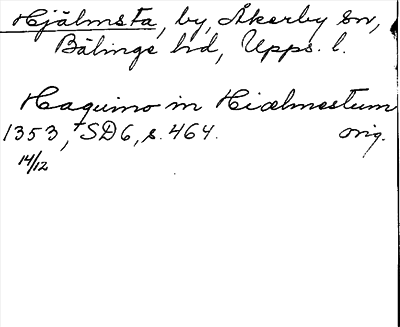 Hjälmsta, by, Åkerby sn,
Bälinge hd, Upps. l.
Haquino in Hiælmestum
1353, SD6, s. 464. orig.
14/12